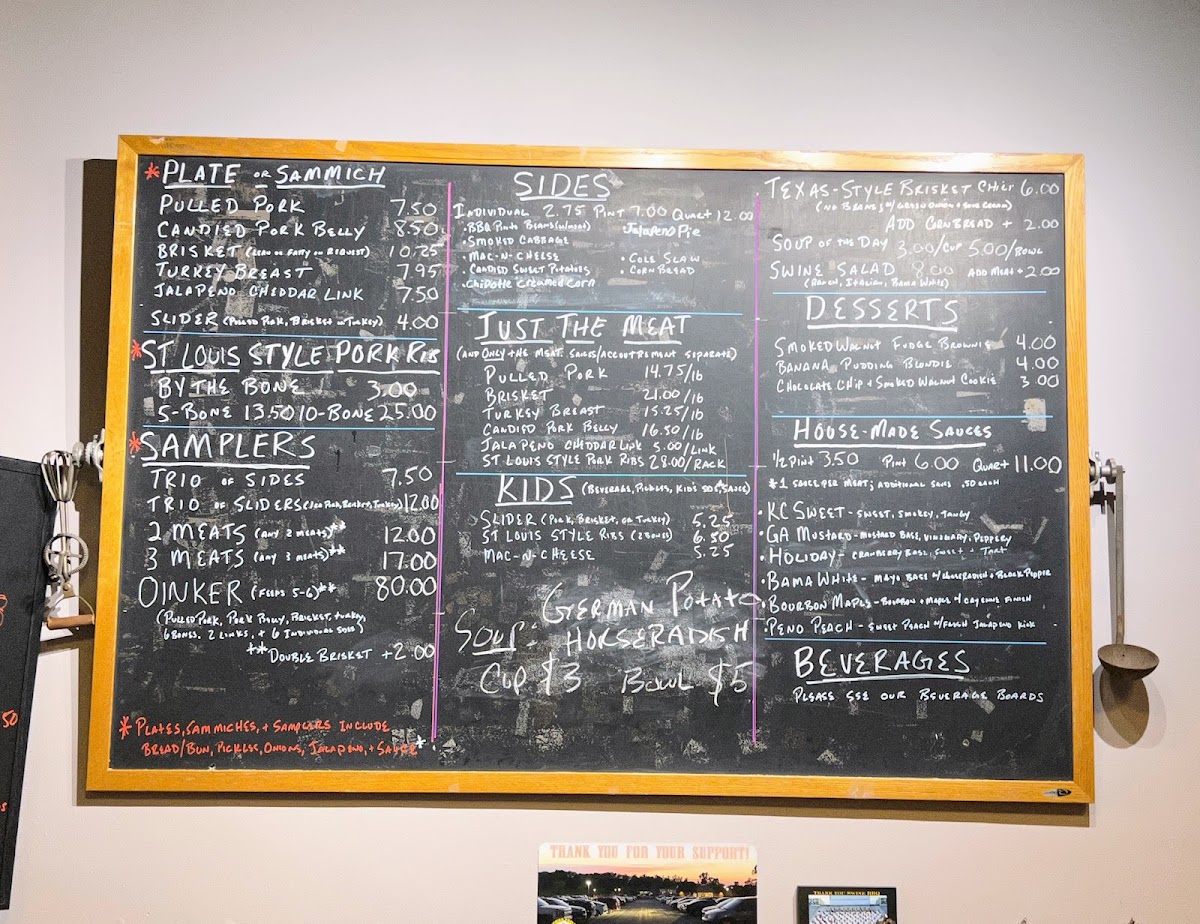 * PLATE OR SAMMICH
PULLED PORK 7.50
CANDIED PORK BELLY 8.50
BRISKET (LEAN OR FATTY ON REQUEST) 10.25
TURKEY BREAST 7.95
JALAPENO CHEDDAR LINK 7.50
SLIDER (PULLED PORK, BRISKET OR TURKEY) 4.00
* ST LOUIS STYLE PORK RIBS
BY THE BONE 3.00
5-BONE 13.50 10-BONE 25.00
* SAMPLERS
TRIO OF SIDES 7.50
TRIO OF SLIDERS 12.00
2 MEATS (ANY 2 MEATS)** 12.00
3 MEATS (ANY 3 MEATS)** 17.00
OINKER (FEEDS 5-6)** 80.00
(PULLED PORK, PORK BELLY, BRISKET, TURKEY,
6 BONES, 2 LINKS, + 6 INDIVIDUAL SIDES)
**DOUBLE BRISKET +2.00
* PLATES, SAMMICHES, + SAMPLERS INCLUDE
BREAD/BUN, PICKLES, ONIONS, JALAPENO, + SAUCE *
SIDES
INDIVIDUAL 2.75 PINT 7.00 QUART 12.00
• BBQ PINTO BEANS (W/MEAT)
Jalapeño Pie
• SMOKED CABBAGE
• MAC-N-CHEESE
• COLE SLAW
• CANDIED SWEET POTATOES
• CORN BREAD
• Chipotle Creamed Corn
JUST THE MEAT
(AND ONLY THE MEAT. SAUCES/ACCOUTREMENT SEPARATE)
PULLED PORK 14.75/lb
BRISKET 21.00/lb
TURKEY BREAST 15.25/lb
CANDIED PORK BELLY 16.50/lb
JALAPENO CHEDDAR LINK 5.00/LINK
ST LOUIS STYLE PORK RIBS 28.00/RACK
KIDS (BEVERAGE, PICKLES, KID'S SIDE, SAUCE)
SLIDER (PORK, BRISKET, OR TURKEY) 5.25
ST LOUIS STYLE RIBS (2 BONES) 6.50
MAC-N-CHEESE 5.25
GERMAN POTATO
SOUP: HORSERADISH
CUP $3 BOWL $5
TEXAS-STYLE BRISKET CHILI 6.00
(NO BEANS; W/ GREEN ONION + SOUR CREAM)
ADD CORNBREAD + 2.00
SOUP OF THE DAY 3.00/CUP 5.00/BOWL
SWINE SALAD 8.00 ADD MEAT + 2.00
(RANCH, ITALIAN, BAMA WHITE)
DESSERTS
SMOKED WALNUT FUDGE BROWNIE 4.00
BANANA PUDDING BLONDIE 4.00
CHOCOLATE CHIP + SMOKED WALNUT COOKIE 3.00
HOUSE-MADE SAUCES
1/2 PINT 3.50 PINT 6.00 QUART 11.00
*1 SAUCE PER MEAT; ADDITIONAL SAUCES .50 EACH
• KC SWEET - SWEET, SMOKEY, TANGY
• GA MUSTARD - MUSTARD BASE, VINEGARY, PEPPERY
• HOLIDAY - CRANBERRY BASE, SWEET + TART
• BAMA WHITE - MAYO BASE W/ HORSERADISH + BLACK PEPPER
• BOURBON MAPLE - BOURBON + MAPLE W/ CAYENNE FINISH
• PENO PEACH - SWEET PEACH W/ FRESH JALAPENO KICK
BEVERAGES
PLEASE SEE OUR BEVERAGE BOARDS
50
THANK YOU FOR YOUR SUPPORT!
THANK YOU SWINE BBQ